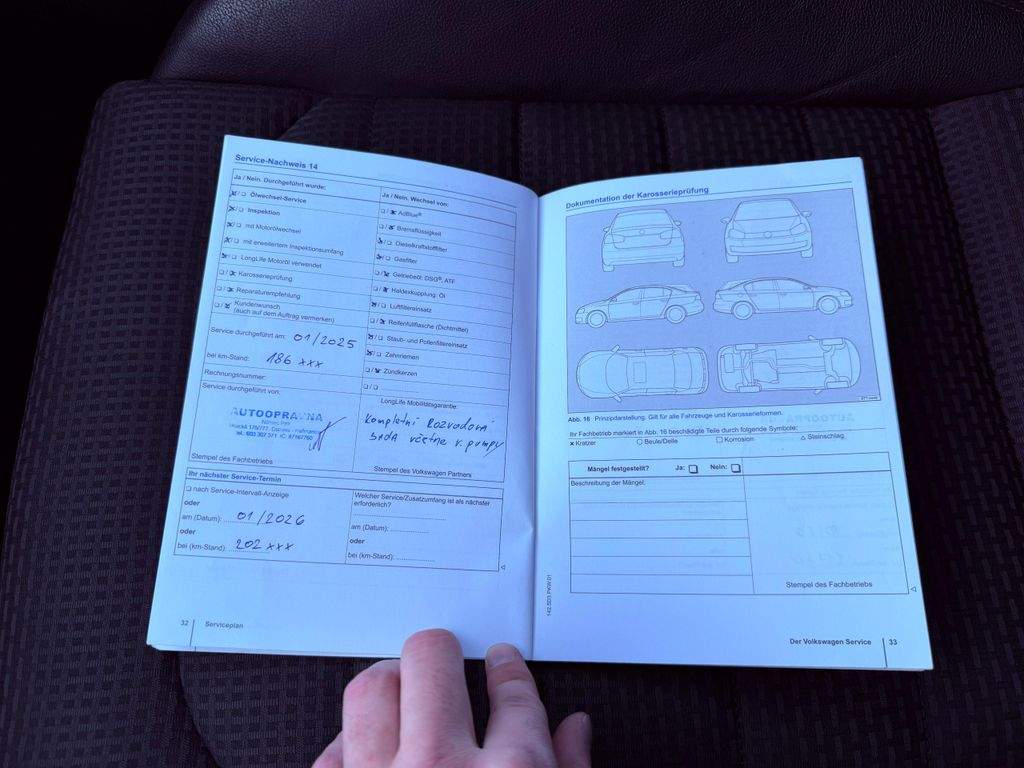 Service-Nachweis 14
Ja / Nein. Durchgeführt wurde:
Ölwechsel-Service
Inspektion
mit Motorölwechsel
mit erweitertem Inspektionsumfang
LongLife Motoröl verwendet
Karosserieprüfung
Reparaturempfehlung
Kundenwunsch
(auch auf dem Auftrag vermerken)
Service durchgeführt am: 01/2025
bei km-Stand: 186 xxx
Rechnungsnummer:
Service durchgeführt von:
AUTOOPRAVNA
Stempel des Fachbetriebs
Ja / Nein. Wechsel von:
AdBlue®
Bremsflüssigkeit
Dieselkraftstofffilter
Gasfilter
Getriebeöl: DSG®, ATF
Haldexkupplung: Öl
Luftfiltereinsatz
Reifenfüllflasche (Dichtmittel)
Staub- und Pollenfiltereinsatz
Zahnriemen
Zündkerzen
LongLife Mobilitätsgarantie:
Kompletní Rozvodová
sada včetně v. pumpy
Stempel des Volkswagen Partners
Ihr nächster Service-Termin
nach Service-Intervall-Anzeige
oder
am (Datum): 01/2026
oder
bei (km-Stand): 202 xxx
Welcher Service/Zusatzumfang ist als nächster
erforderlich?
am (Datum):
oder
bei (km-Stand):
32 Serviceplan
Dokumentation der Karosserieprüfung
Abb. 16 Prinzipdarstellung. Gilt für alle Fahrzeuge und Karosserieformen.
Ihr Fachbetrieb markiert in Abb. 16 beschädigte Teile durch folgende Symbole:
x Kratzer ○ Beule/Delle □ Korrosion △ Steinschlag
Mängel festgestellt? Ja: Nein:
Beschreibung der Mängel:
Stempel des Fachbetriebs
142.5D3.PKW.01
Der Volkswagen Service 33